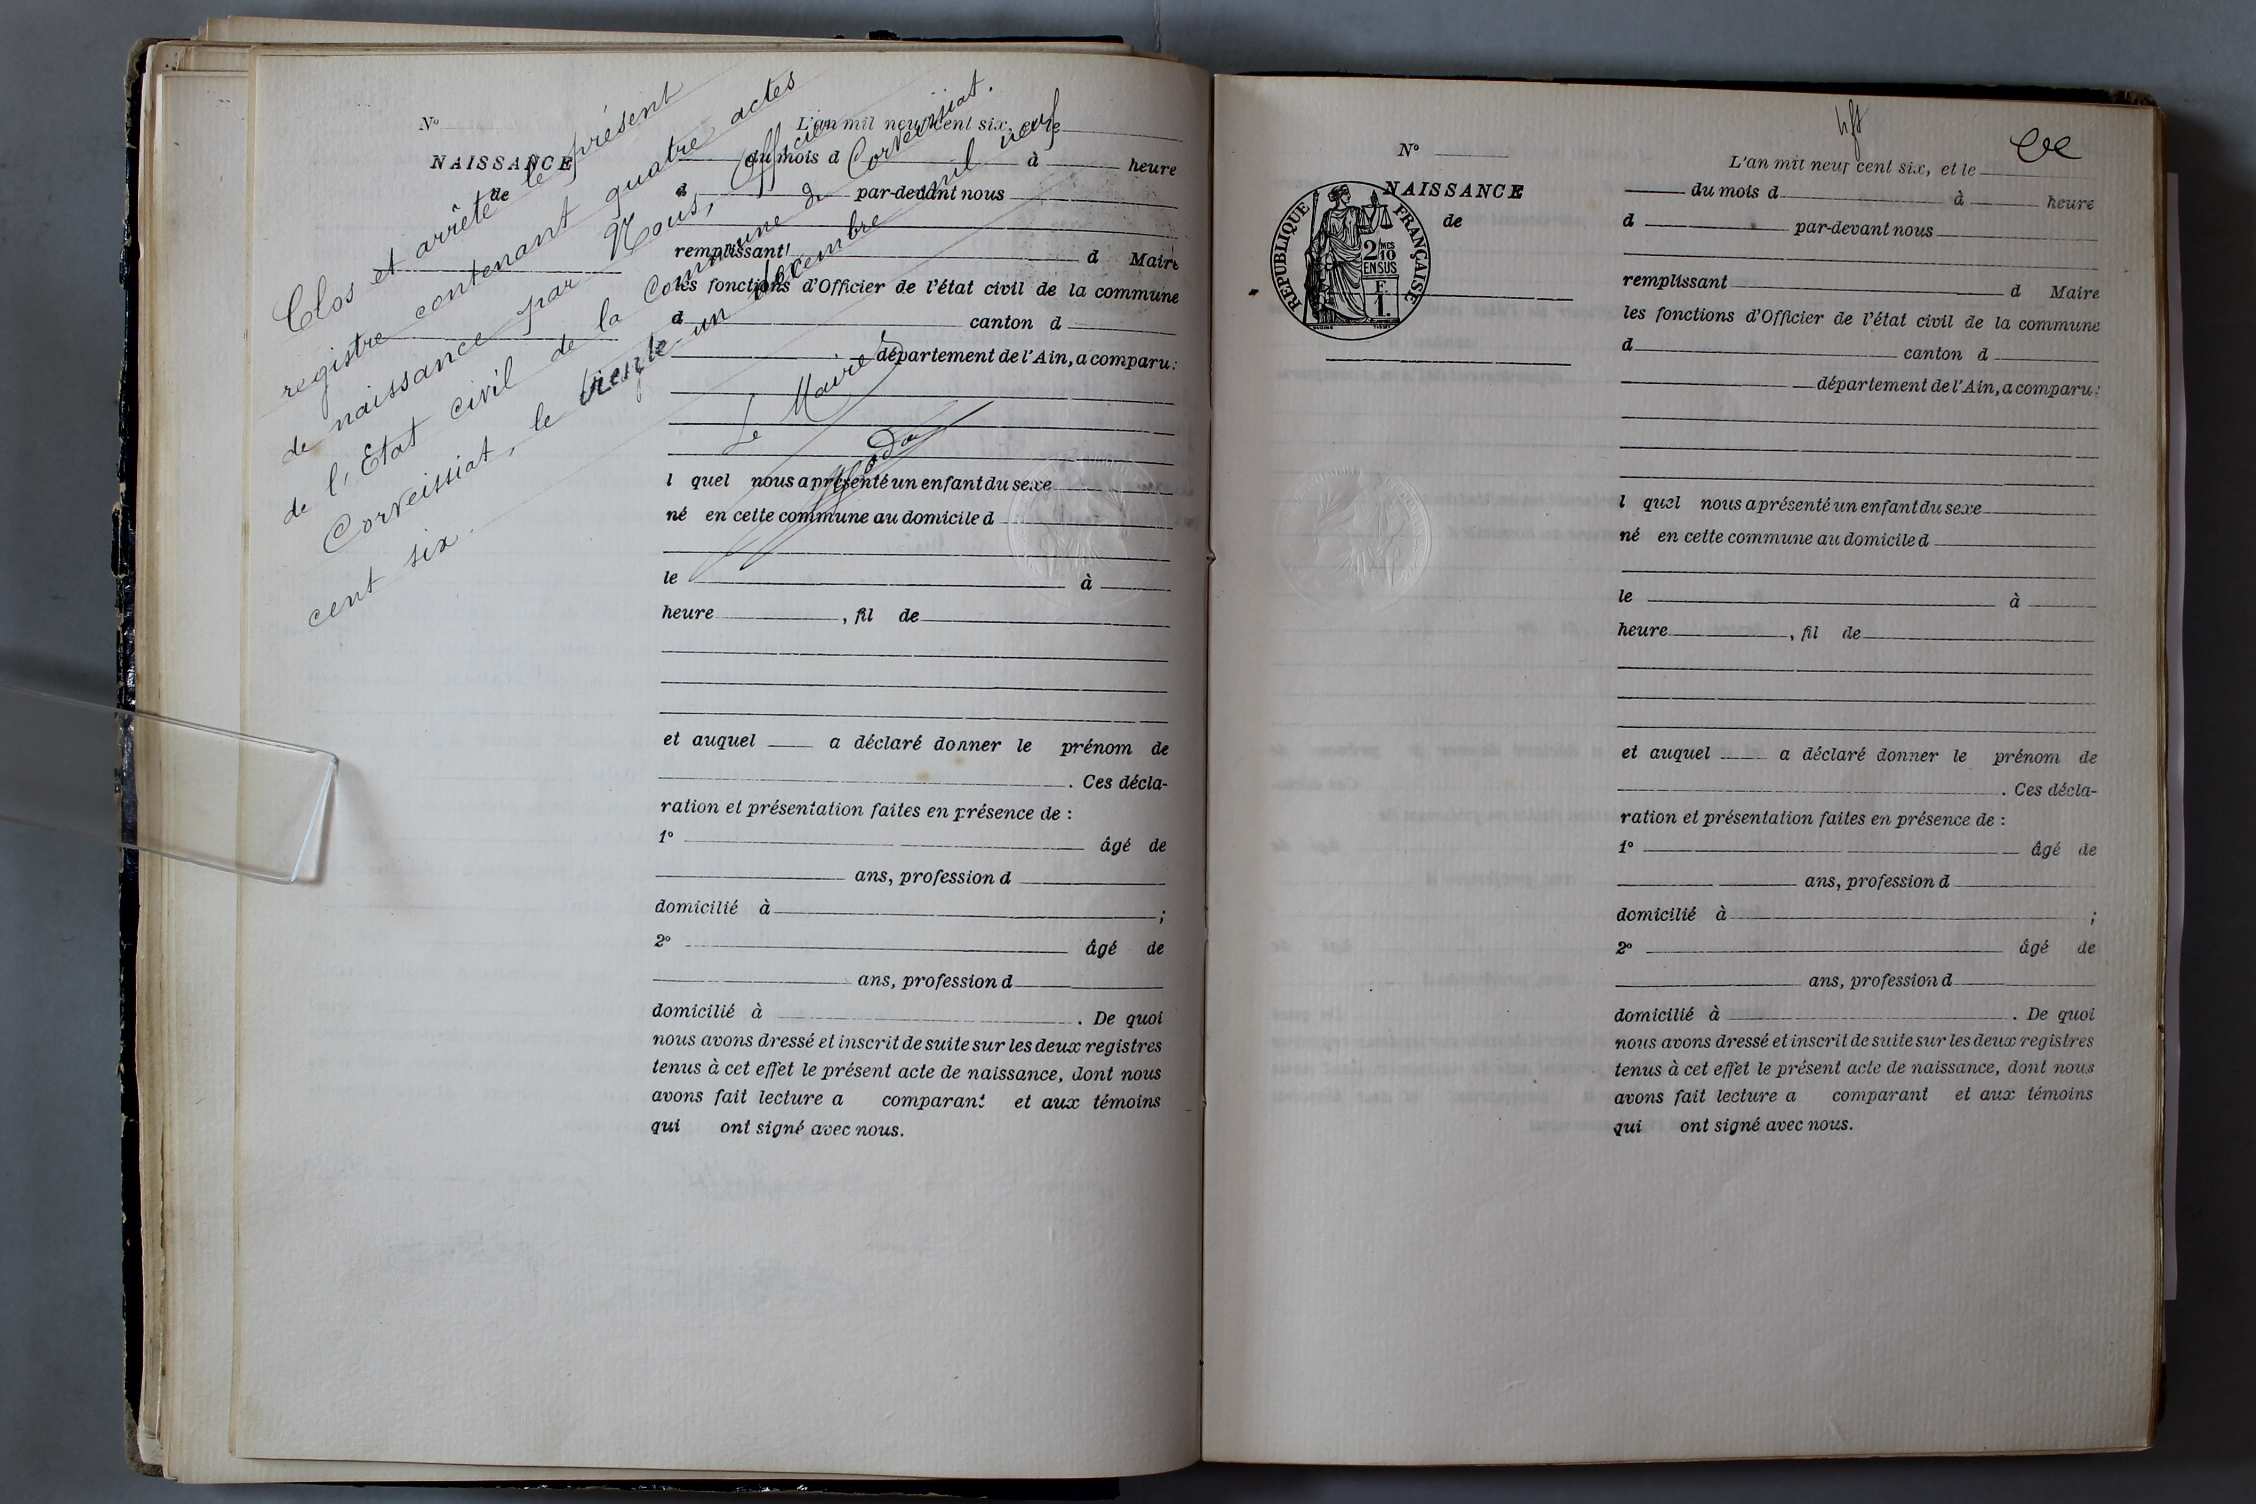 Clos et arrêté le présent
registre contenant quatre actes
de naissance par Nous, Officier
de l'Etat civil de la Commune de Corveissiat.
Corveissiat, le trente un décembre mil neuf
cent six.
Le Maire
N°
NAISSANCE
de
L'an mil neuf cent six, et le
du mois d à heure
d par-devant nous
remplissant d Maire
les fonctions d'Officier de l'état civil de la commune
d canton d
département de l'Ain, a comparu:
l quel nous a présenté un enfant du sexe
né en cette commune au domicile d
le à
heure , fil de
et auquel a déclaré donner le prénom de
. Ces décla-
ration et présentation faites en présence de :
1° âgé de
ans, profession d
domicilié à ;
2° âgé de
ans, profession d
domicilié à . De quoi
nous avons dressé et inscrit de suite sur les deux registres
tenus à cet effet le présent acte de naissance, dont nous
avons fait lecture a comparant et aux témoins
qui ont signé avec nous.
N°
NAISSANCE
de
RÉPUBLIQUE FRANÇAISE
2 MES
10
EN SUS
F
1.
L'an mil neuf cent six, et le
du mois d à heure
d par-devant nous
remplissant d Maire
les fonctions d'Officier de l'état civil de la commune
d canton d
département de l'Ain, a comparu:
l quel nous a présenté un enfant du sexe
né en cette commune au domicile d
le à
heure , fil de
et auquel a déclaré donner le prénom de
. Ces décla-
ration et présentation faites en présence de :
1° âgé de
ans, profession d
domicilié à ;
2° âgé de
ans, profession d
domicilié à . De quoi
nous avons dressé et inscrit de suite sur les deux registres
tenus à cet effet le présent acte de naissance, dont nous
avons fait lecture a comparant et aux témoins
qui ont signé avec nous.